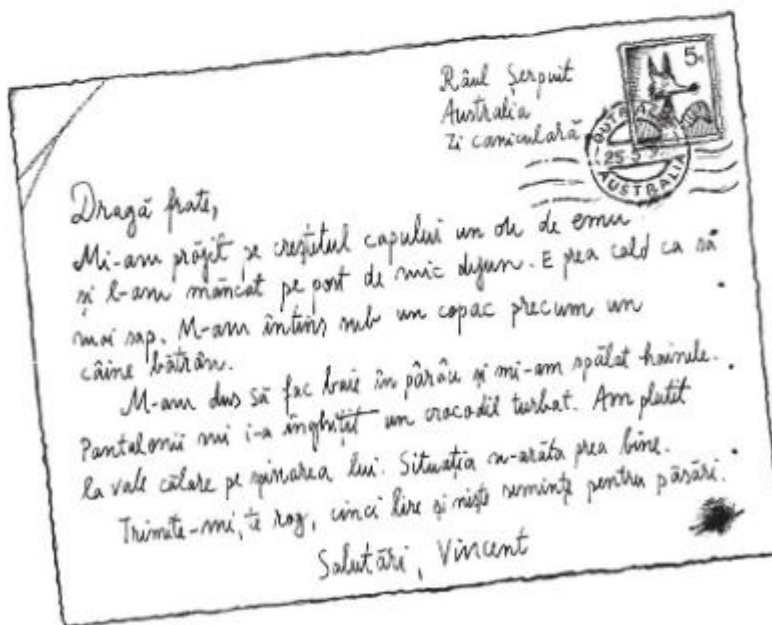 Râul Șerpuit
Australia
Zi caniculară
5
OUTBAC
25-5
AUSTRALIA
Dragă frate,
Mi-am prăjit pe creștetul capului un ou de emu
și l-am mâncat pe post de mic dejun. E prea cald ca să
mai sap. M-am întins sub un copac precum un
câine bătrân.
M-am dus să fac baie în pârâu și mi-am spălat hainele.
Pantalonii mi i-a înghițit un crocodil turbat. Am plutit
la vale călare pe spinarea lui. Situația n-arăta prea bine.
Trimite-mi, te rog, cinci lire și niște semințe pentru păsări.
Salutări, Vincent